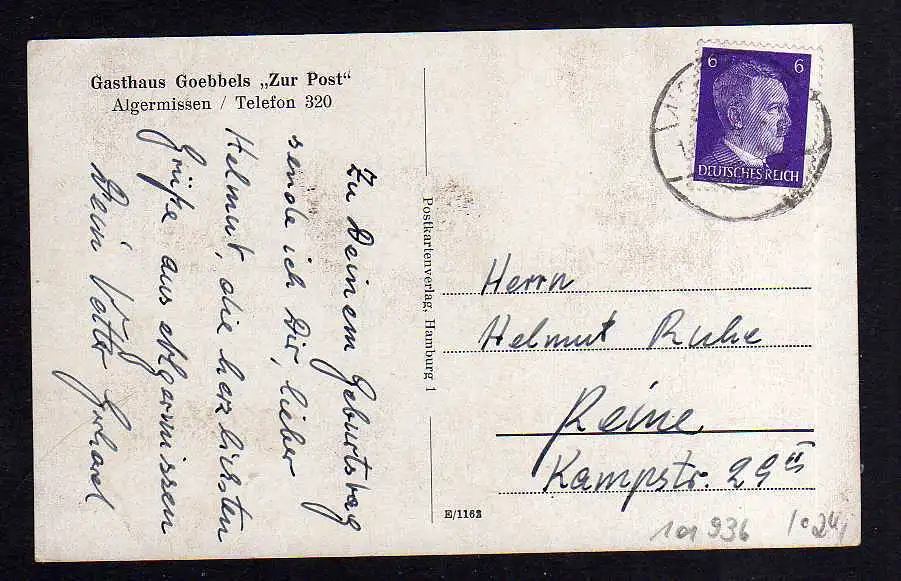 Gasthaus Goebbels „Zur Post“
Algermissen / Telefon 320
Zu Deinem Geburtstag
sende ich Dir, lieber
Helmut, die herzlichsten
Grüße aus Algermissen
Dein Vetter Gerhard
Postkartenverlag, Hamburg 1
E/1162
6 6
DEUTSCHES REICH
Herrn
Helmut Ruhe
Reine
Kampstr. 29 II
101 936